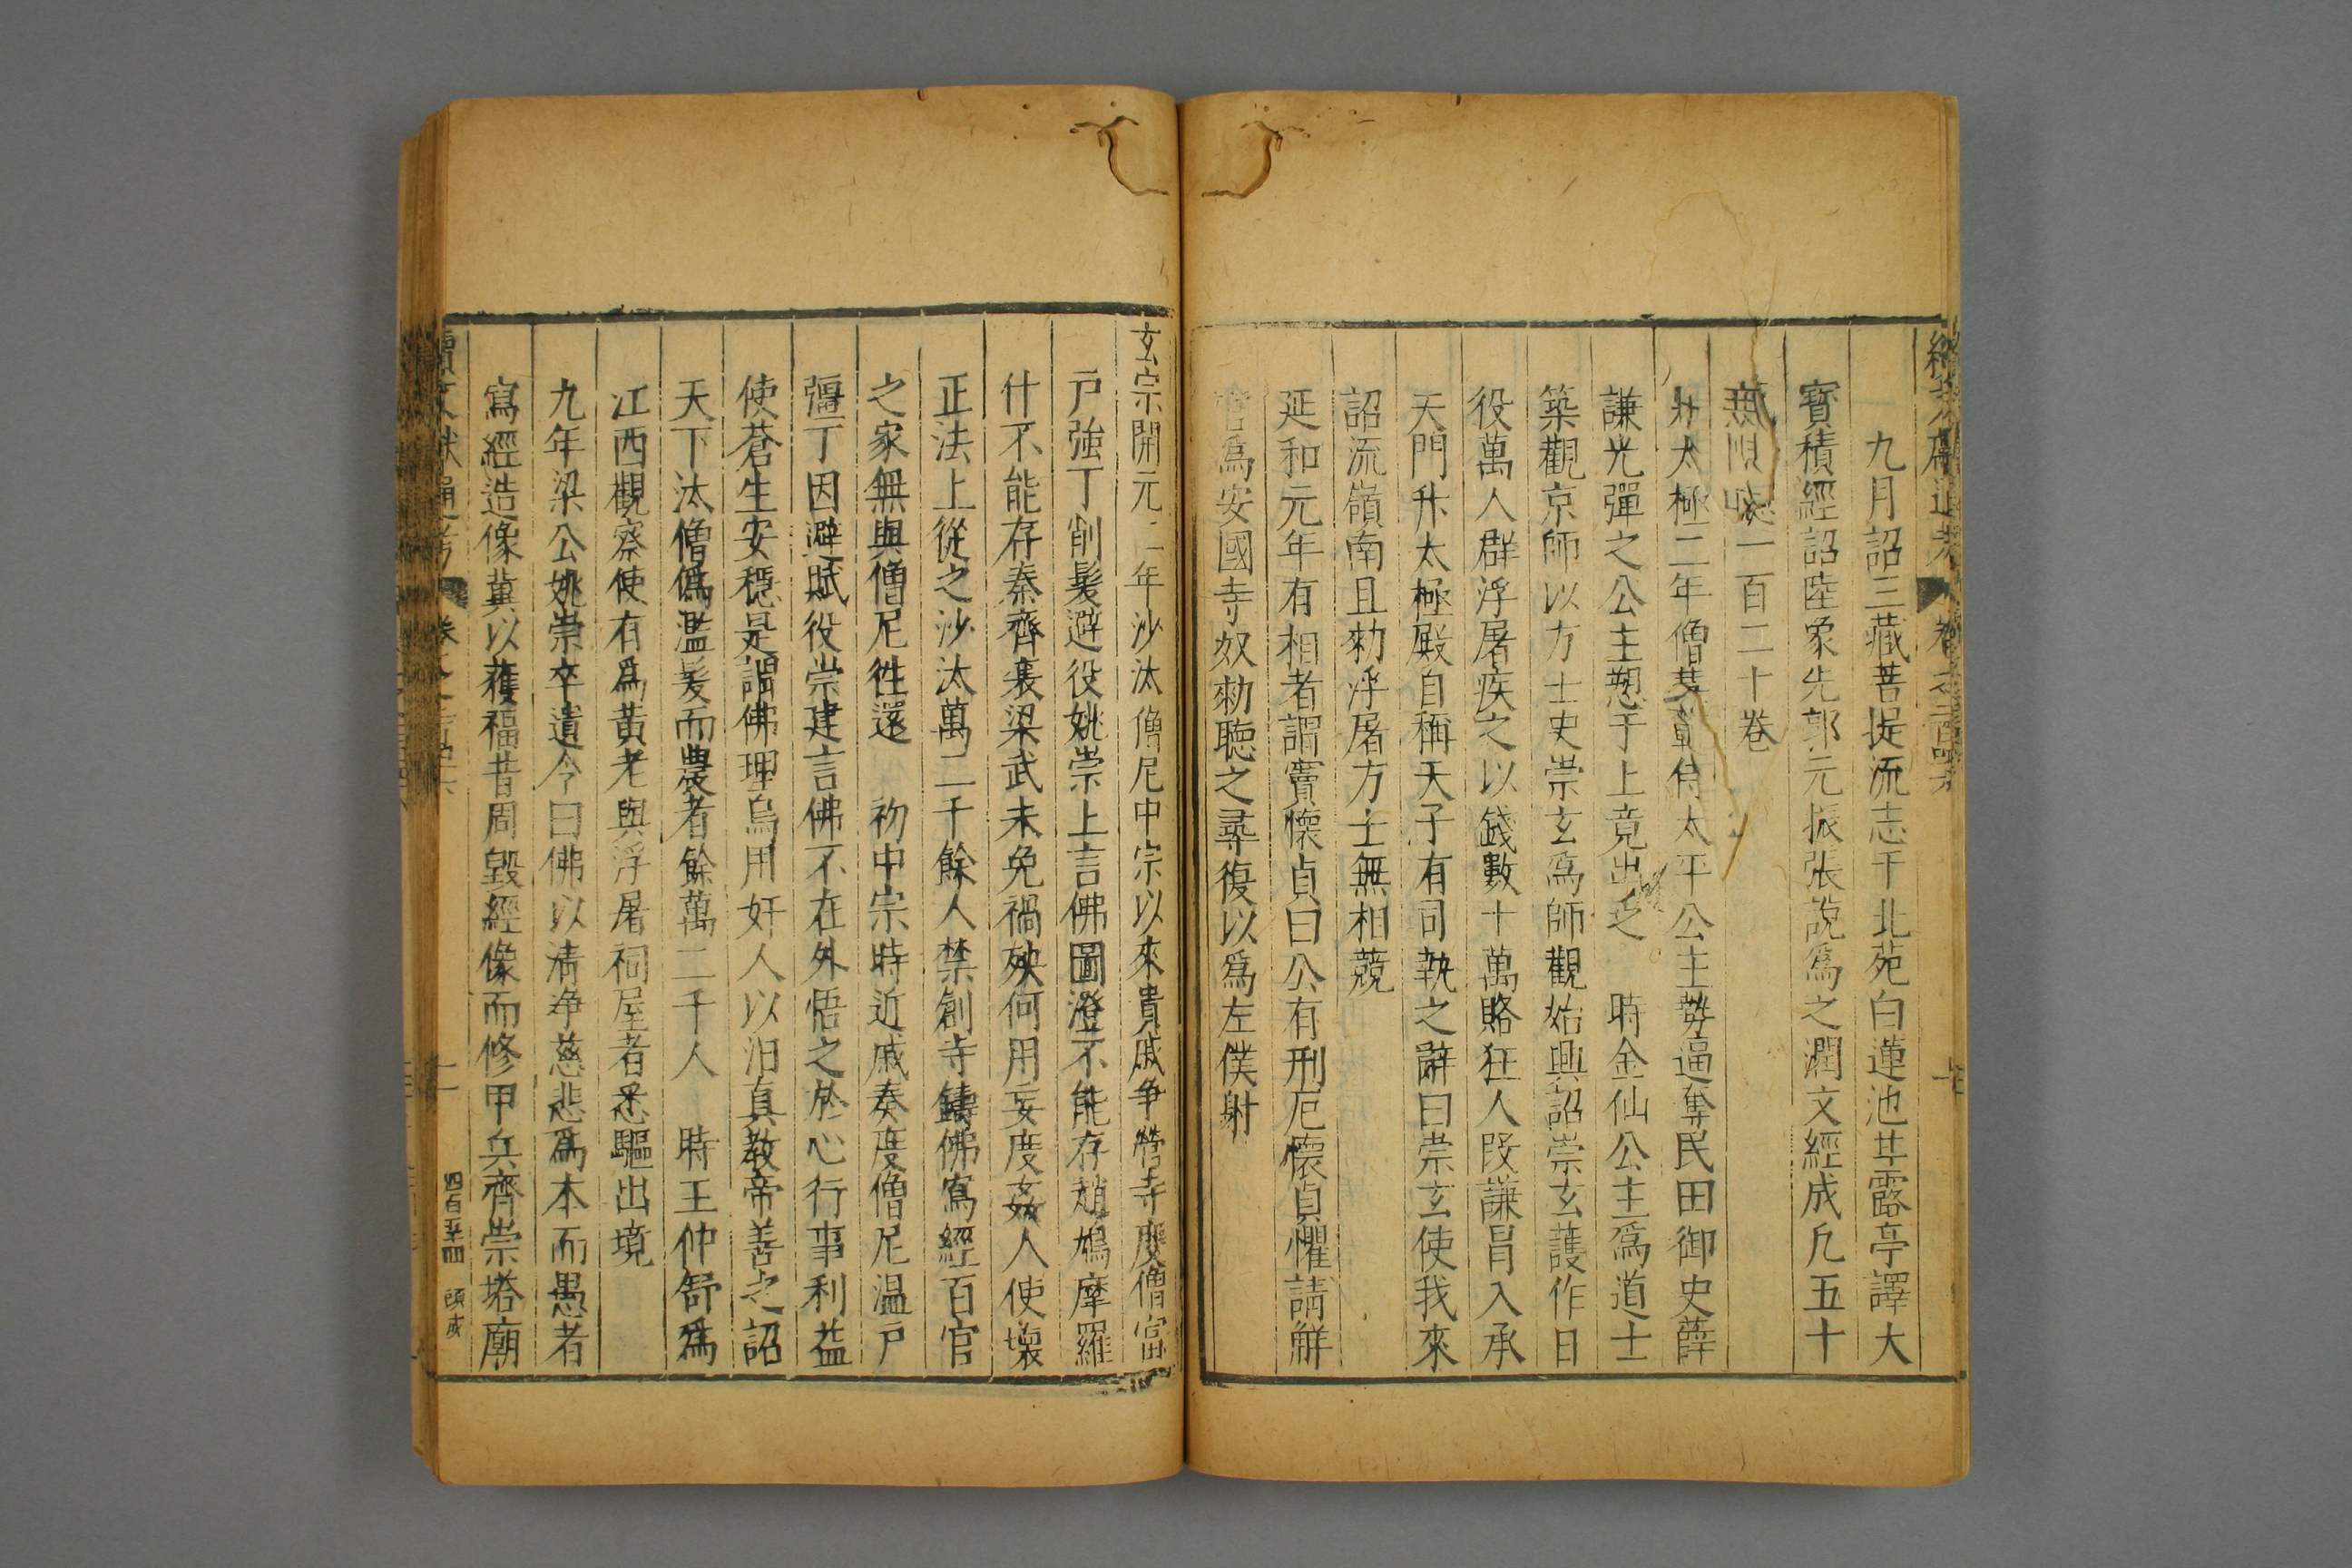 九月詔三藏菩提流志于北苑白蓮池甘露亭譯大
寶積經詔陸象先郭元振張說爲之潤文經成凡五十
一百二十卷
太極二年僧慧範侍太平公主勢逼奪民田御史薛
謙光彈之公主愬于上竟出之 時金仙公主爲道士
築觀京師以方士史崇玄爲師觀始興詔崇玄護作日
役萬人群浮屠疾之以錢數十萬賂狂人段謙冒入承
天門升太極殿自稱天子有司執之辭曰崇玄使我來
詔流嶺南且勑浮屠方士無相競
延和元年有相者謂竇懷貞曰公有刑厄懷貞懼請解
官爲安國寺奴勑聽之尋復以爲左僕射
玄宗開元二年沙汰僧尼中宗以來貴戚争營寺度僧富
戶強丁削髮避役姚崇上言佛圖澄不能存趙鳩摩羅
什不能存秦齊襄梁武未免禍殃何用妄度姦人使壞
正法上從之沙汰萬二千餘人禁創寺鑄佛寫經百官
之家無與僧尼徃還 初中宗時近戚奏度僧尼温戶
彊丁因避賦役崇建言佛不在外悟之於心行事利益
使蒼生安穩是謂佛理烏用奸人以汨真教帝善之詔
天下汰僧僞濫髮而農者餘萬二千人 時王仲舒爲
江西觀察使有爲黄老與浮屠祠屋者悉驅出境
九年梁公姚崇卒遺令曰佛以清净慈悲爲本而愚者
寫經造像冀以獲福昔周毀經像而修甲兵齊崇塔廟
續文獻通考 卷之二百四十六
四百五十四 頭成